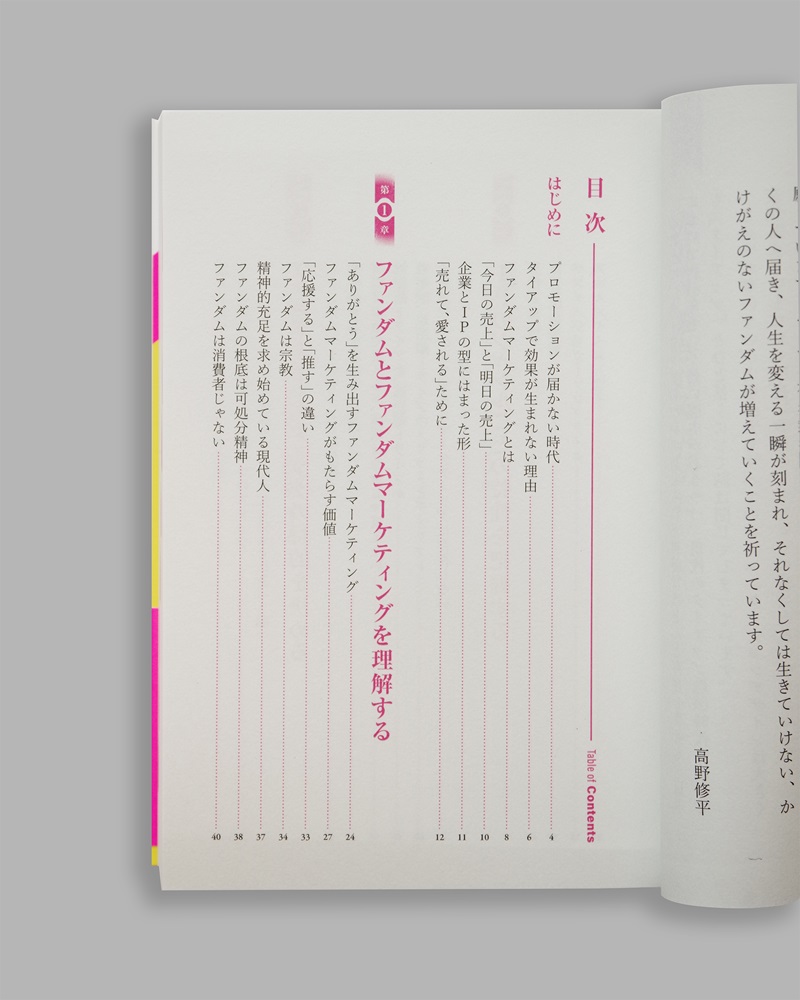 くの人へ届き、人生を変える一瞬が刻まれ、それなくしては生きていけない、か
けがえのないファンダムが増えていくことを祈っています。
高野修平
目次 Table of Contents
はじめに
プロモーションが届かない時代 4
タイアップで効果が生まれない理由 6
ファンダムマーケティングとは 8
「今日の売上」と「明日の売上」 10
企業とIPの型にはまった形 11
「売れて、愛される」ために 12
第1章 ファンダムとファンダムマーケティングを理解する
「ありがとう」を生み出すファンダムマーケティング 24
ファンダムマーケティングがもたらす価値 27
「応援する」と「推す」の違い 33
ファンダムは宗教 34
精神的充足を求め始めている現代人 37
ファンダムの根底は可処分精神 38
ファンダムは消費者じゃない 40